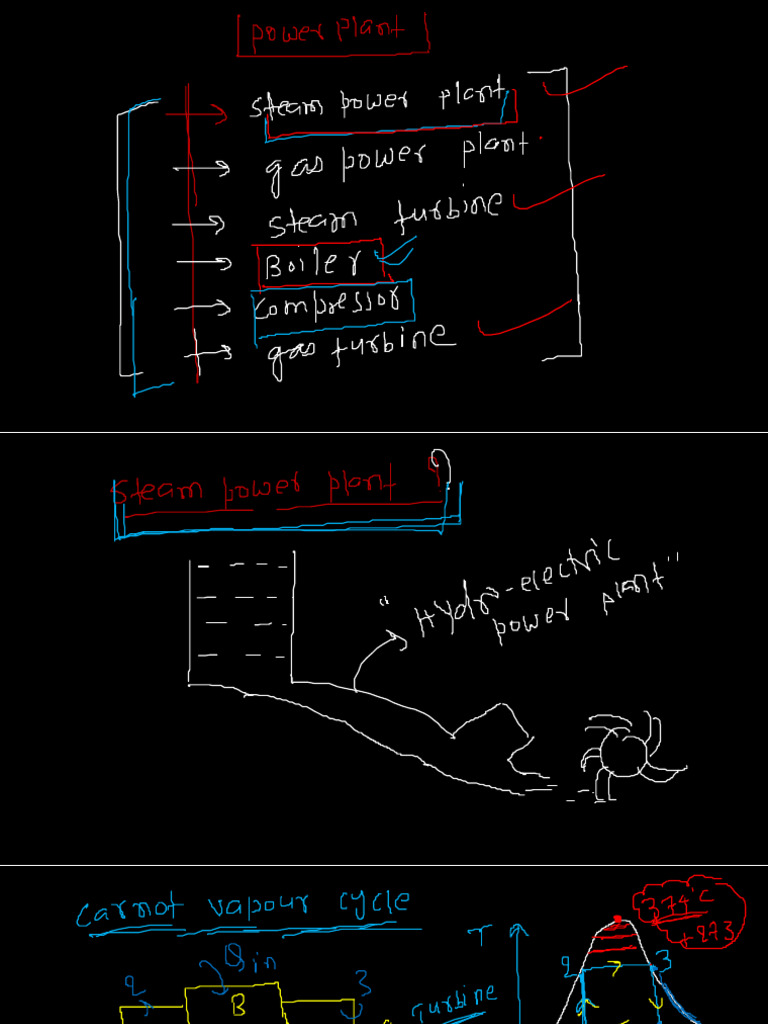 power plant
→ steam power plant
→ gas power plant
→ steam turbine
→ Boiler
→ compressor
→ gas turbine
steam power plant
"Hydro-electric
power plant"
carnot vapour cycle
374°C
+273
T
Qin
2
3
2
3
B
Turbine